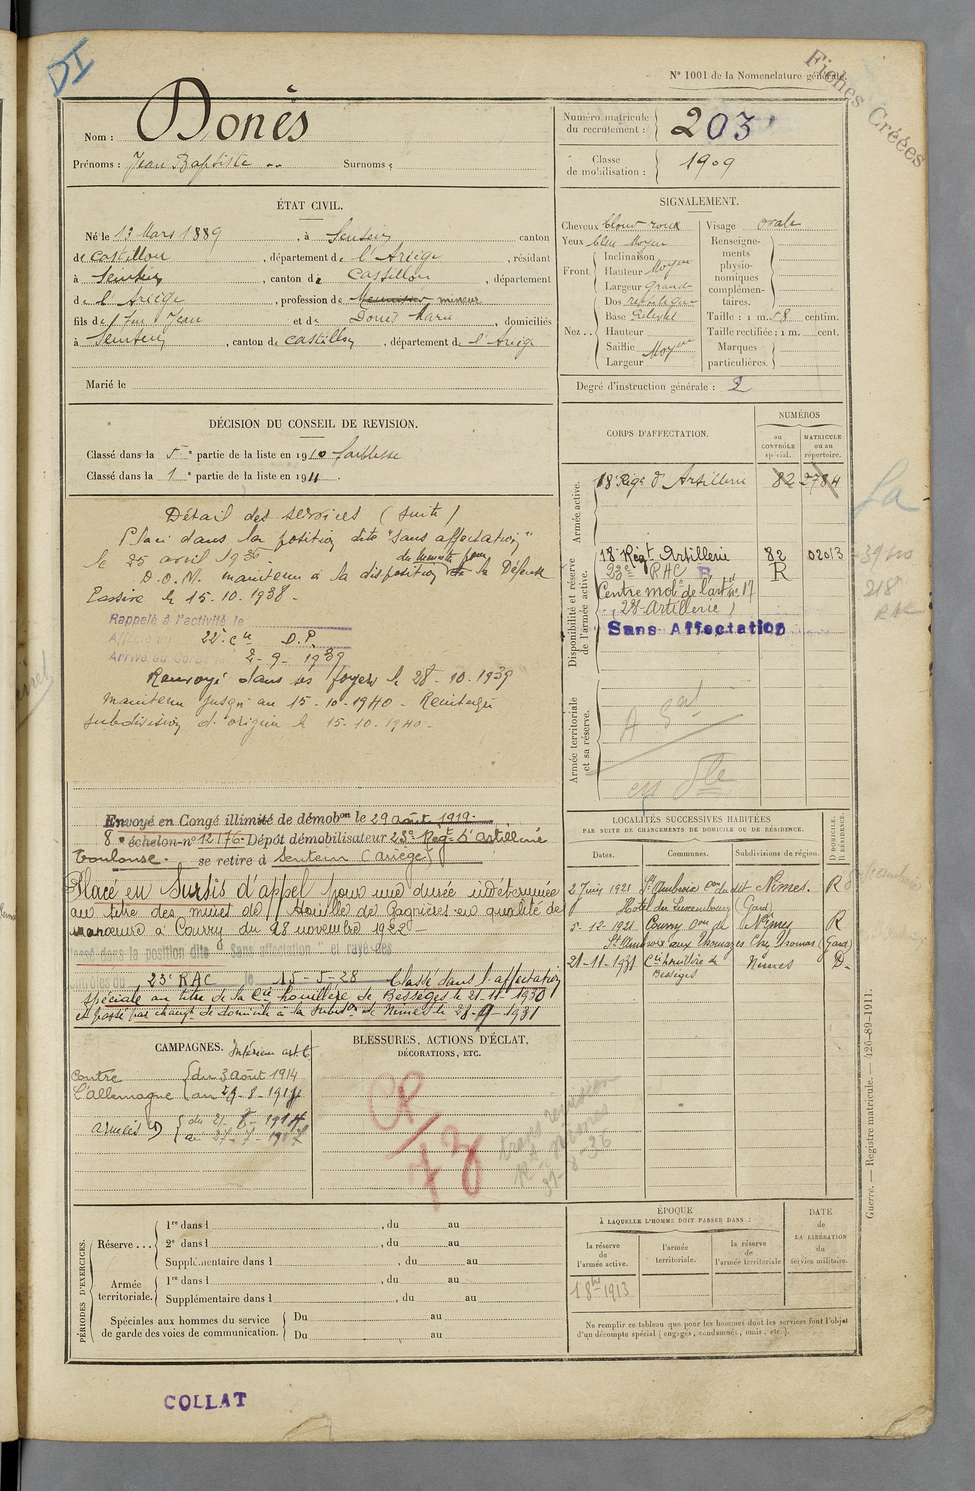 DI
N° 1001 de la Nomenclature générale.
Fiches Créées
Nom : Donès
Prénoms : Jean Baptiste Surnoms :
Numéro matricule du recrutement : 203
Classe de mobilisation : 1909
ÉTAT CIVIL.
Né le 13 Mars 1889, à Sentein canton
de Castillon, département de l'Ariège, résidant
à Sentein, canton de Castillon, département
de l'Ariège, profession de mineur
fils de feu Jean et de Donès Marie, domiciliés
à Sentein, canton de Castillon, département de l'Ariège
Marié le
SIGNALEMENT.
Cheveux blond roux
Yeux bleu Moyen
Front. Inclinaison
Hauteur Moyen
Largeur Grand
Nez .. Dos rectiligne
Base
Hauteur
Saillie Moyen
Largeur
Visage ovale
Renseignements physionomiques complémentaires.
Taille : 1 m. 58 centim.
Taille rectifiée : 1 m. cent.
Marques particulières.
Degré d'instruction générale : 2
DÉCISION DU CONSEIL DE REVISION.
Classé dans la 5e partie de la liste en 1910 faiblesse
Classé dans la 1e partie de la liste en 1911.
CORPS D'AFFECTATION.
NUMÉROS
au CONTRÔLE spécial.
MATRICULE ou au répertoire.
Armée active.
18 Rég. d'Artillerie 82 2784
Disponibilité et réserve de l'armée active.
18e Régt Artillerie 82 02013
23e RAC R R
Centre mob. de l'art. n° 17
(28 Artillerie)
Sans Affectation
Armée territoriale et sa réserve.
Détail des services (suite)
Placé dans la position dite "Sans affectation"
le 25 avril 1936
D.O.M. maintenu à la disposition du Ministre pour la Défense
Passive le 15-10-1938 -
Rappelé à l'activité le
Affecté au 22e Cie D.P.
Arrivé au corps le 2-9-1939
Renvoyé dans ses foyers le 28-10-1939
maintenu jusqu'au 15-10-1940 - Réintégré
subdivision d'origine le 15-10-1940 -
Envoyé en Congé illimité de démobon le 29 août 1919.
8e échelon n° 12176. Dépôt démobilisateur 23e Régt d'Artillerie
Toulouse. se retire à Sentein (Ariège)
Placé en Sursis d'appel pour une durée indéterminée
au titre des mines de Houille de Gagnières en qualité de
manœuvre à Courry du 28 novembre 1922 -
Classé dans la position dite "Sans affectation" et rayé des
contrôles du 23e RAC le 15-5-28 Classé dans l'affectation
spéciale au titre de la Cie houillère de Bessèges le 21-11-1930
et passé par changt de domicile à la subdon de Nîmes le 28-9-1931
LOCALITÉS SUCCESSIVES HABITÉES
PAR SUITE DE CHANGEMENTS DE DOMICILE OU DE RÉSIDENCE.
Dates. Communes. Subdivisions de région. D DOMICILE. R RÉSIDENCE.
2 Juin 1921 St Ambroix con du dit Nîmes. R
Hôtel du Luxembourg (Gard)
5-12-1921 Courry con de Nîmes R
St Ambroix aux Thomazes Chez Thomas (Gard)
21-11-1931 Cie houillère de Bessèges Nîmes D.
CAMPAGNES.
contre l'Allemagne
du 3 Août 1914
BLESSURES, ACTIONS D'ÉCLAT,
DÉCORATIONS, ETC.
PÉRIODES D'EXERCICES.
Réserve ... 1re dans l , du au
2e dans l , du au
Supplémentaire dans l , du au
Armée territoriale. 1re dans l , du au
Supplémentaire dans l , du au
Spéciales aux hommes du service de garde des voies de communication. Du au
Du au
ÉPOQUE
À LAQUELLE L'HOMME DOIT PASSER DANS :
la réserve de l'armée active.
l'armée territoriale.
la réserve de l'armée territoriale
DATE de LA LIBÉRATION du service militaire.
1 8bre 1913
Ne remplir ce tableau que pour les hommes dont les services font l'objet
d'un décompte spécial (engagés, condamnés, omis, etc.).
Guerre. — Registre matricule. — 426-89-1911.
COLLAT